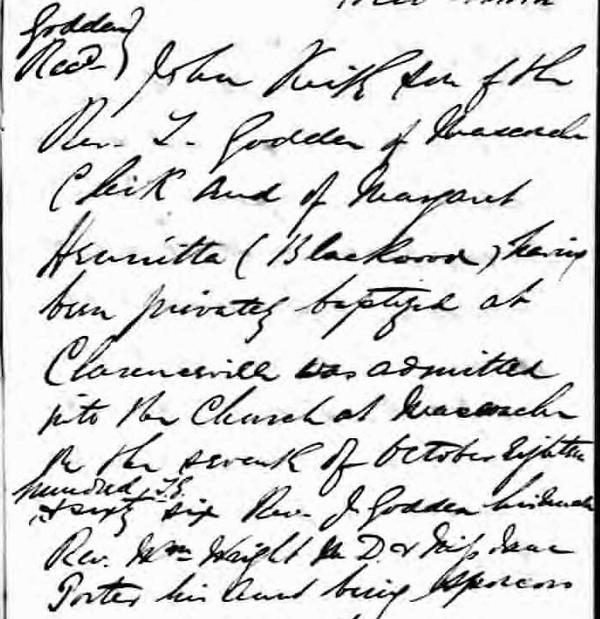 Godden
Recd
John Keith son of the
Rev. T. Godden of
Clerk and of Margaret
Henrietta (Blackwood) having
been privately baptized at
Clarenceville was admitted
into the Church at
on the seventh of October Eighteen
hundred T.G.
& sixty six Rev. J. Godden his Uncle
Rev. Wm Wright M.D. & Miss
Porter his Aunt being sponsors